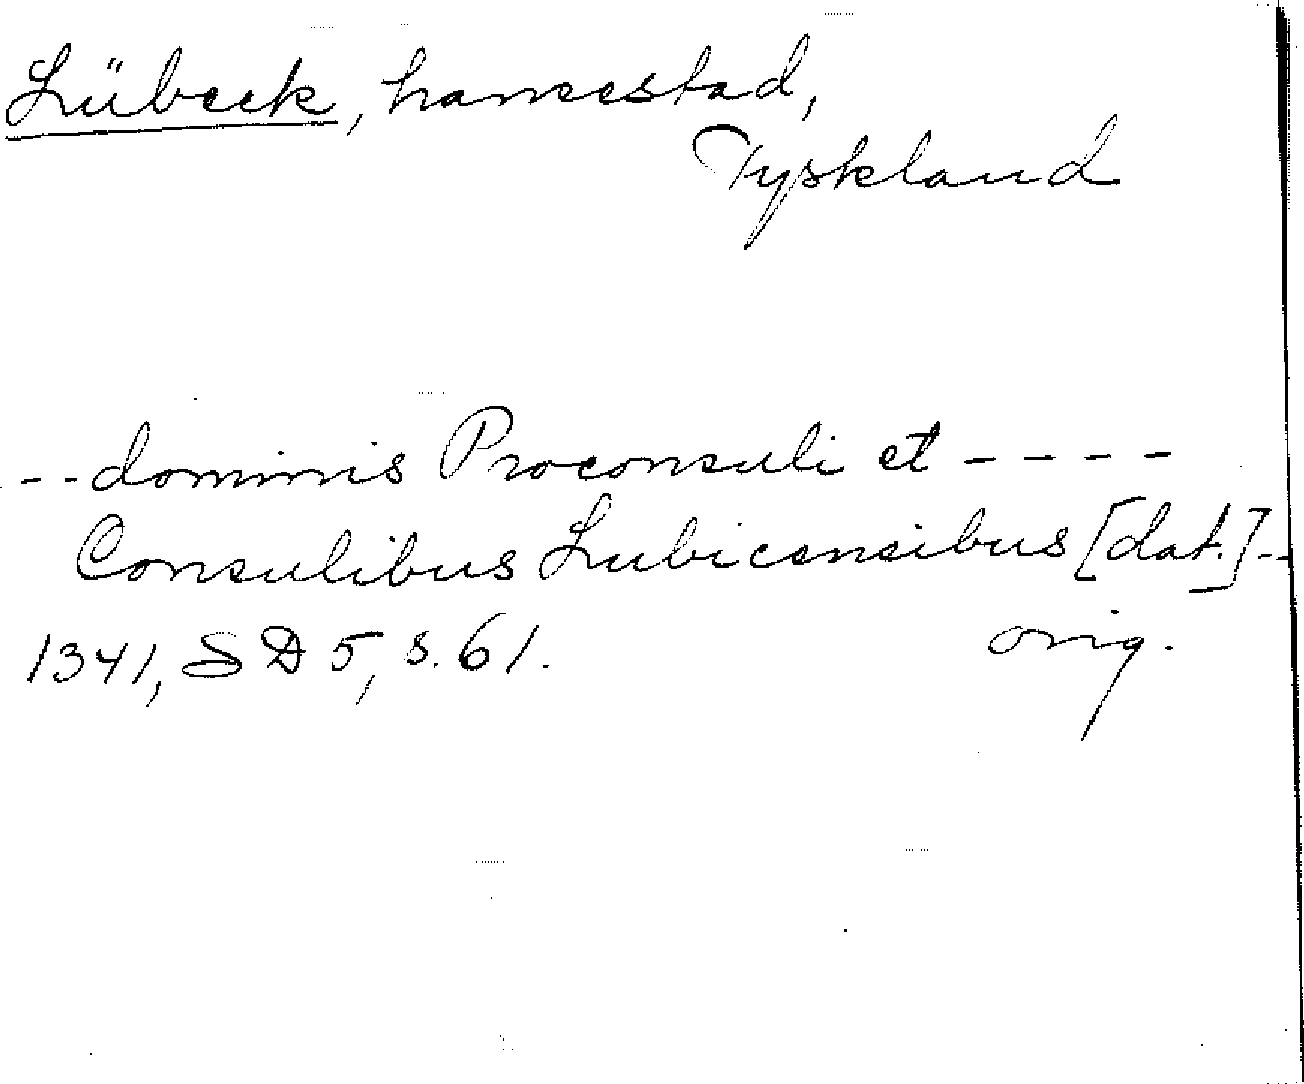 Lübeck, hansestad,
Tyskland
-- dominis Proconsuli et ----
Consulibus Lubicensibus [dat.] --
1341, SD 5, s. 61. orig.